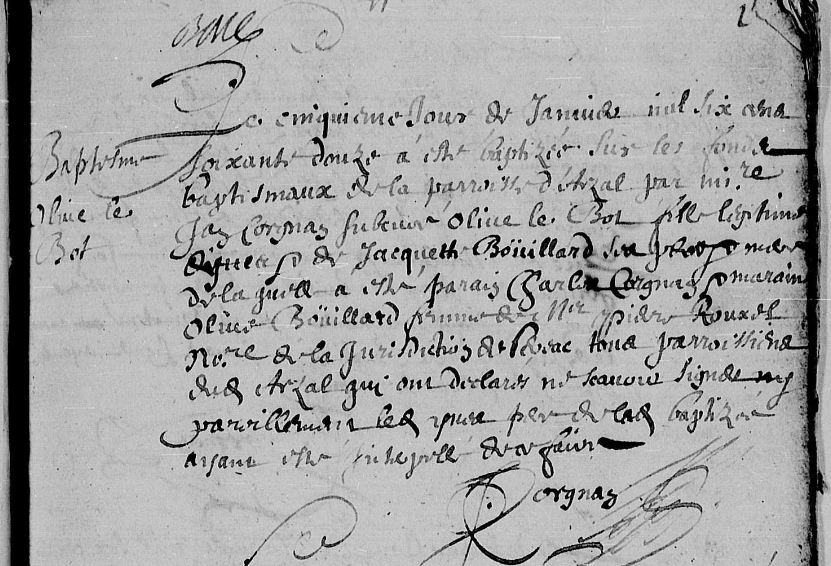 Baptesme
Olive le
Bot
Le cinquieme Jour de Janvier mil six cens
soixante douze a esté baptizée sur les fonds
baptismaux de la parroisse d'Arzal par mire
Jan Corgnan subcuré Olive le Bot fille legitime
de Jacquette Boüillard ses pere & mere
de laquelle a esté parain Charles Corgnan & maraine
Olive Boüillard femme de Mer Pierre Rouxel
Nore de la Jurisdiction de tous parroissiens
dud Arzal qui ont declarés ne scavoir signer ny
pareillement led pere de lad baptizée
ayant esté interpellé de ce faire
J. Corgnan